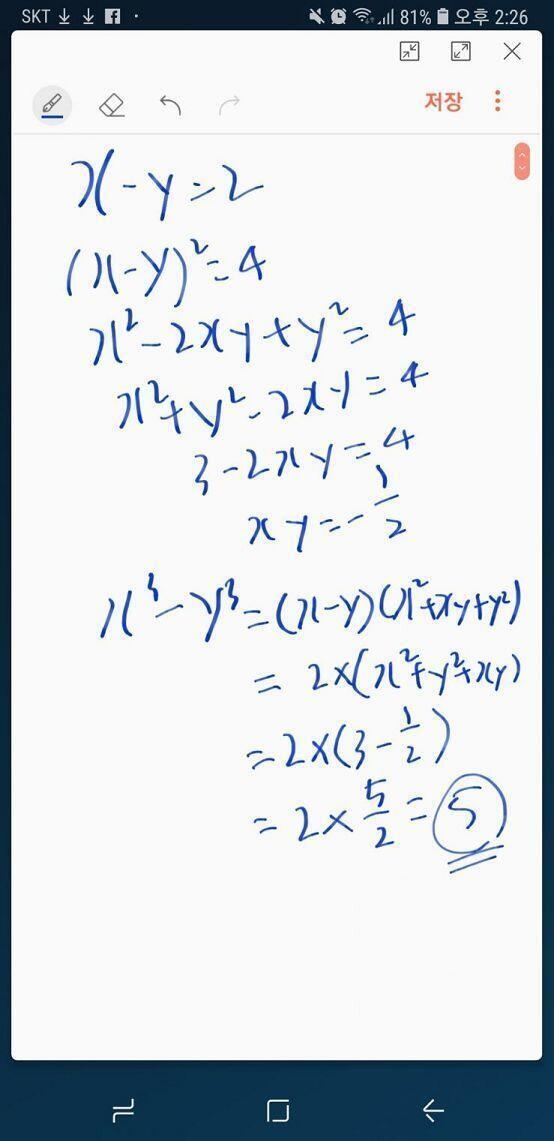 SKT 81% 오후 2:26
저장
x-y=2
(x-y)²=4
x²-2xy+y²=4
x²+y²-2xy=4
3-2xy=4
xy=-1/2
x³-y³=(x-y)(x²+xy+y²)
=2×(x²+y²+xy)
=2×(3-1/2)
=2×5/2=5